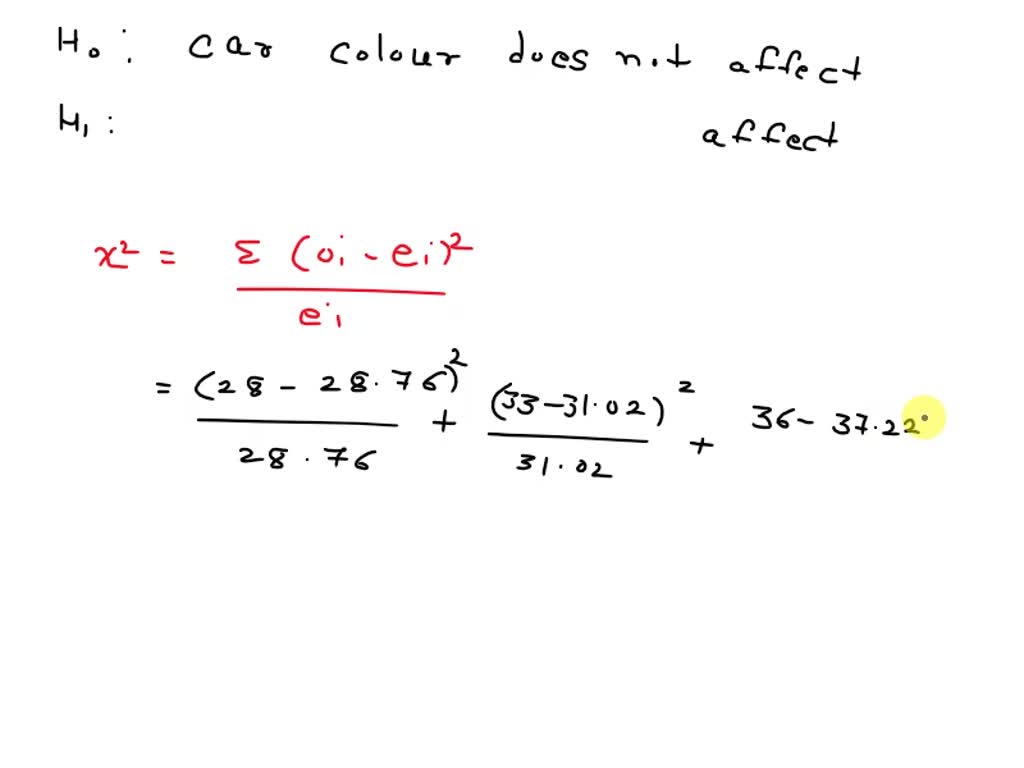 H₀ : car colour does not affect
H₁ : affect
x² = Σ (oi - ei)²
ei
= (28 - 28.76)² + (33-31.02)² + 36- 37.22
28.76 31.02